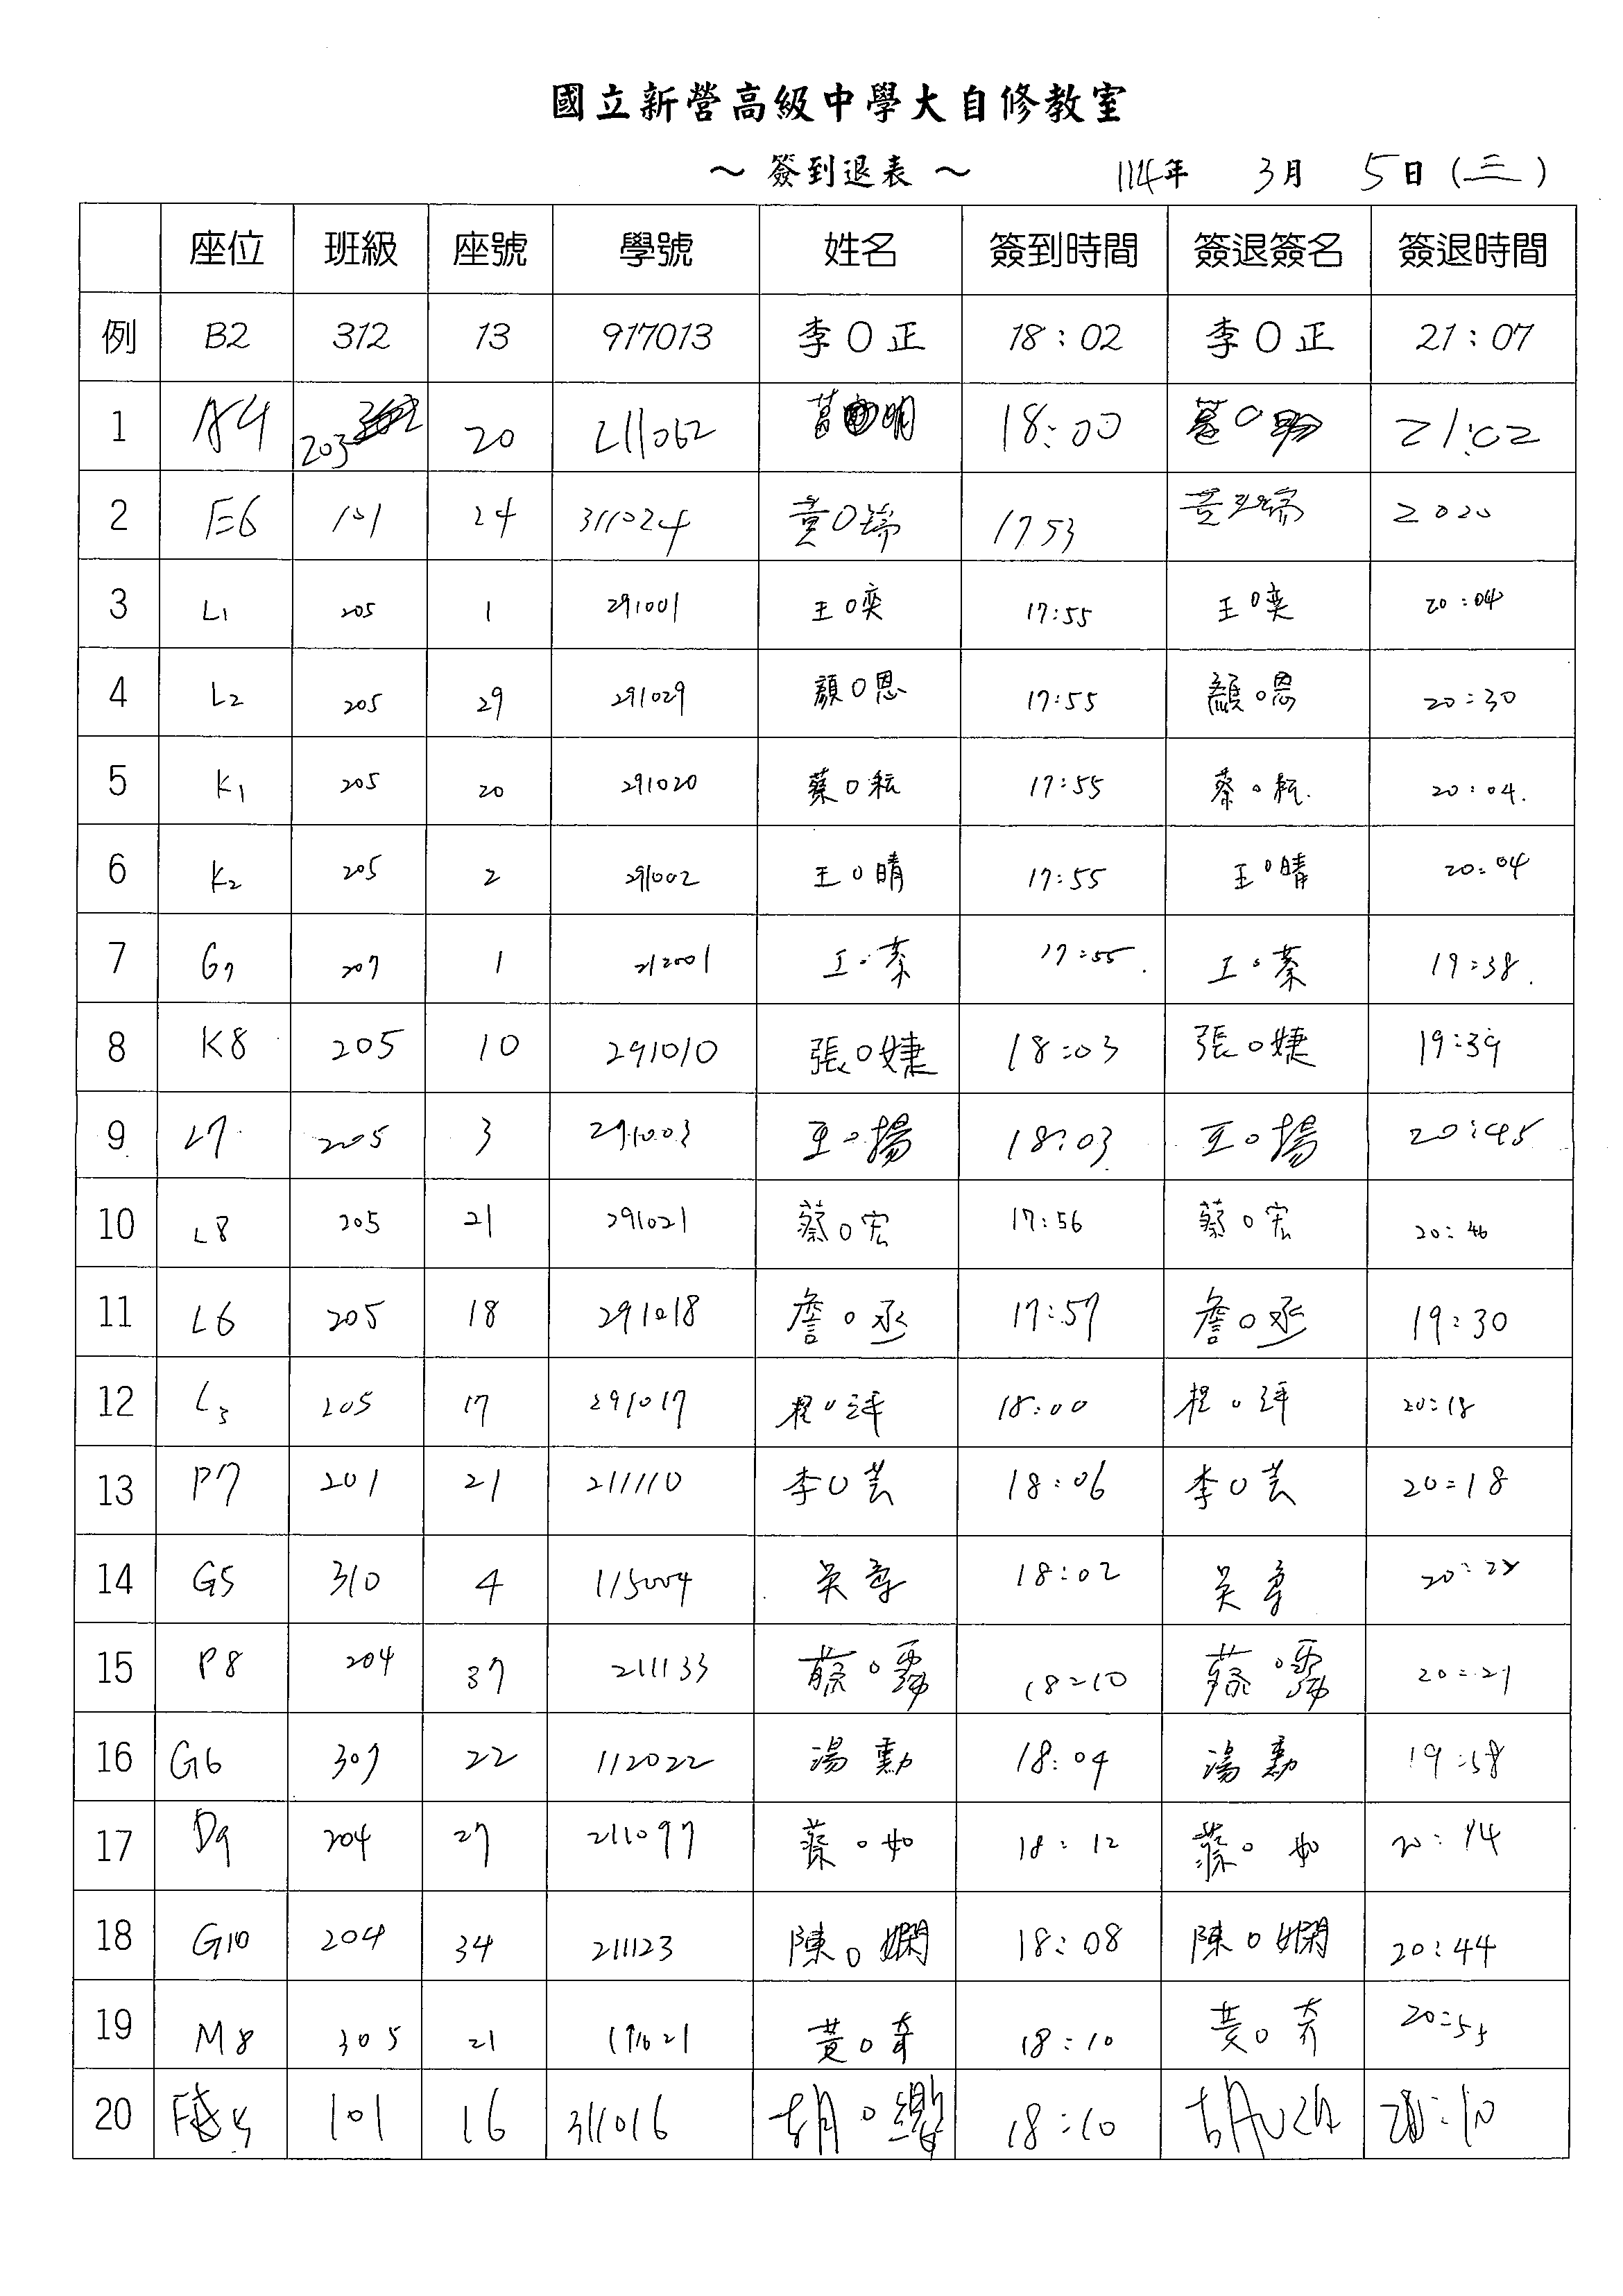 國立新營高級中學大自修教室
～ 簽到退表 ～ 114年 3月 5日(三)
座位 班級 座號 學號 姓名 簽到時間 簽退簽名 簽退時間
例 B2 312 13 917013 李O正 18:02 李O正 21:07
1 A4 203 20 211062 葛 明 18:00 葛O明 21:02
2 E6 101 24 311024 黃O 1753 黃 2020
3 L1 205 1 291001 王O奕 17:55 王O奕 20:04
4 L2 205 29 291029 顏O恩 17:55 顏O恩 20:30
5 K1 205 20 291020 蔡O耘 17:55 蔡O耘 20:04
6 K2 205 2 291002 王O晴 17:55 王O晴 20:04
7 G7 207 1 212001 王O蓁 17:55 王O蓁 19:38
8 K8 205 10 291010 張O婕 18:03 張O婕 19:39
9 L7 205 3 291003 王O揚 18:03 王O揚 20:45
10 L8 205 21 291021 蔡O宏 17:56 蔡O宏 20:46
11 L6 205 18 291018 詹O丞 17:57 詹O丞 19:30
12 L3 205 17 291017 程O評 18:00 程O評 20:18
13 P7 201 21 211110 李O芸 18:06 李O芸 20:18
14 G5 310 4 115004 吳 18:02 吳
15 P8 204 37 211133 蔡O霈 18:10 蔡O霈 20:21
16 G6 307 22 112022 湯 勳 18:04 湯 勳 19:58
17 D9 204 27 211097 蔡O如 18:12 蔡O如 20:14
18 G10 204 34 211123 陳O嫻 18:08 陳O嫻 20:44
19 M8 305 21 黃O奇 18:10 黃O奇 20:55
20 101 16 311016 胡O 18:10 胡O